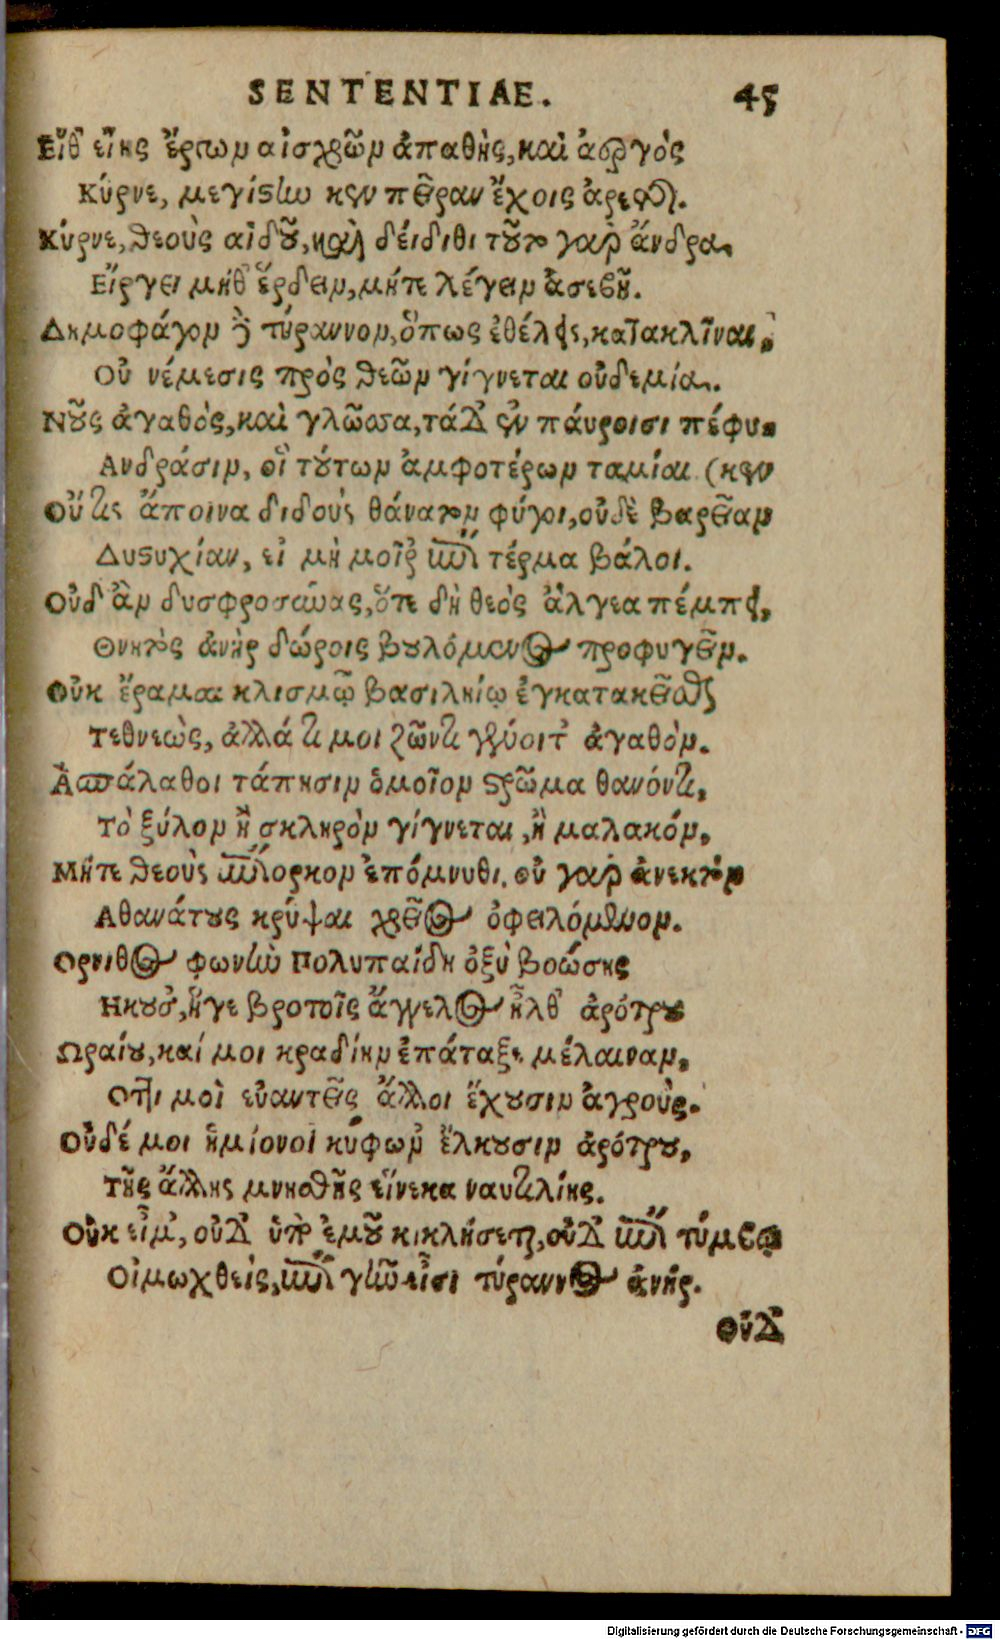 SENTENTIAE. 45
Εἴθ' εἴης ἔργων αἰσχρῶν ἀπαθὴς, καὶ ἀεργὸς
Κύρνε, μεγίστην κεν πεῖραν ἔχοις ἀρετῆς.
Κύρνε, θεοὺς αἰδοῦ, καὶ δείδιθι τοῦτο γὰρ ἄνδρα
Εἴργει μήθ' ἕρδειν, μήτε λέγειν ἀσεβῆ.
Δημοφάγον δὲ τύραννον, ὅπως ἐθέλεις, κατακλῖναι,
Οὐ νέμεσις πρὸς θεῶν γίγνεται οὐδεμία.
Νοῦς ἀγαθὸς, καὶ γλῶσσα, τάδ' ἐν παύροισι πέφυ-
Ανδράσιν, οἳ τούτων ἀμφοτέρων ταμίαι. (κεν
Οὔτις ἄποινα διδοὺς θάνατον φύγοι, οὐδὲ βαρεῖαν
Δυστυχίαν, εἰ μὴ μοῖρ' ἐπὶ τέρμα βάλοι.
Οὐδ' ἂν δυσφροσύνας, ὅτε δὴ θεὸς ἄλγεα πέμπει,
Θνητὸς ἀνὴρ δώροις βουλόμενος προφυγεῖν.
Οὐκ ἔραμαι κλισμῷ βασιληίῳ ἐγκατακεῖσθαι
Τεθνεὼς, ἀλλά τι μοι ζῶντι γένοιτ' ἀγαθὸν.
Ἀσπάλαθοι τάπησιν ὁμοῖον στρῶμα θανόντι,
Τὸ ξύλον ἢ σκληρὸν γίγνεται, ἢ μαλακόν,
Μήτε θεοὺς ἐπίορκον ἐπόμνυθι. οὐ γὰρ ἀνεκτὸν
Αθανάτους κρύψαι χρεῖος ὀφειλόμενον.
Ορνιθος φωνὴν Πολυπαίδη ὀξὺ βοώσης
Ηκουσ', ἥγε βροτοῖς ἄγγελος ἦλθ' ἀρότρου
Ωραίου, καί μοι κραδίην ἐπάταξε μέλαιναν,
Οττι μοὶ εὐαντεῖς ἄλλοι ἔχουσιν ἀγροὺς.
Οὐδέ μοι ἡμίονοι κύφων' ἕλκουσιν ἀρότρου,
Τῆς ἄλλης μνησθῆς εἵνεκα ναυτιλίης.
Οὐκ εἶμ', οὐδ' ὑπ' ἐμοῦ κικλήσεται, οὐδ' ἐπὶ τύμβῳ
Οἰμωχθεὶς, ἐπὶ γῆν εἶσι τύραννος ἀνήρ.
Οὐδ'
Digitalisierung gefördert durch die Deutsche Forschungsgemeinschaft - DFG